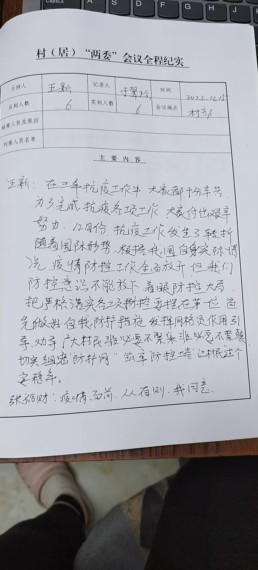 村（居）“两委”会议全程纪实
主持人 王新 记录人 时间 2022.12.15
应到人数 6 实到人数 6 会议地点 村部
缺席人员及原因
列席人员名单
主要内容
王新：在三年抗疫工作中大家都十分辛苦
为了完成抗疫各项工作大家付出艰辛
努力，12月份抗疫工作发生了转折
随着国际形势，根据我国自身实际情
况，疫情防控工作全面放开，但我们
防控意识不能放下，着眼防控大局
把严格落实各项防控要摆在第一位，首
先做好自我防护措施，发挥网格员作用，引
导、劝导广大村民非必要不聚集，非必要不聚餐
切实织密“防护网”，筑牢防控墙，让村民过个
安稳年。
张 财：疫情面前，人人有则，我同意。